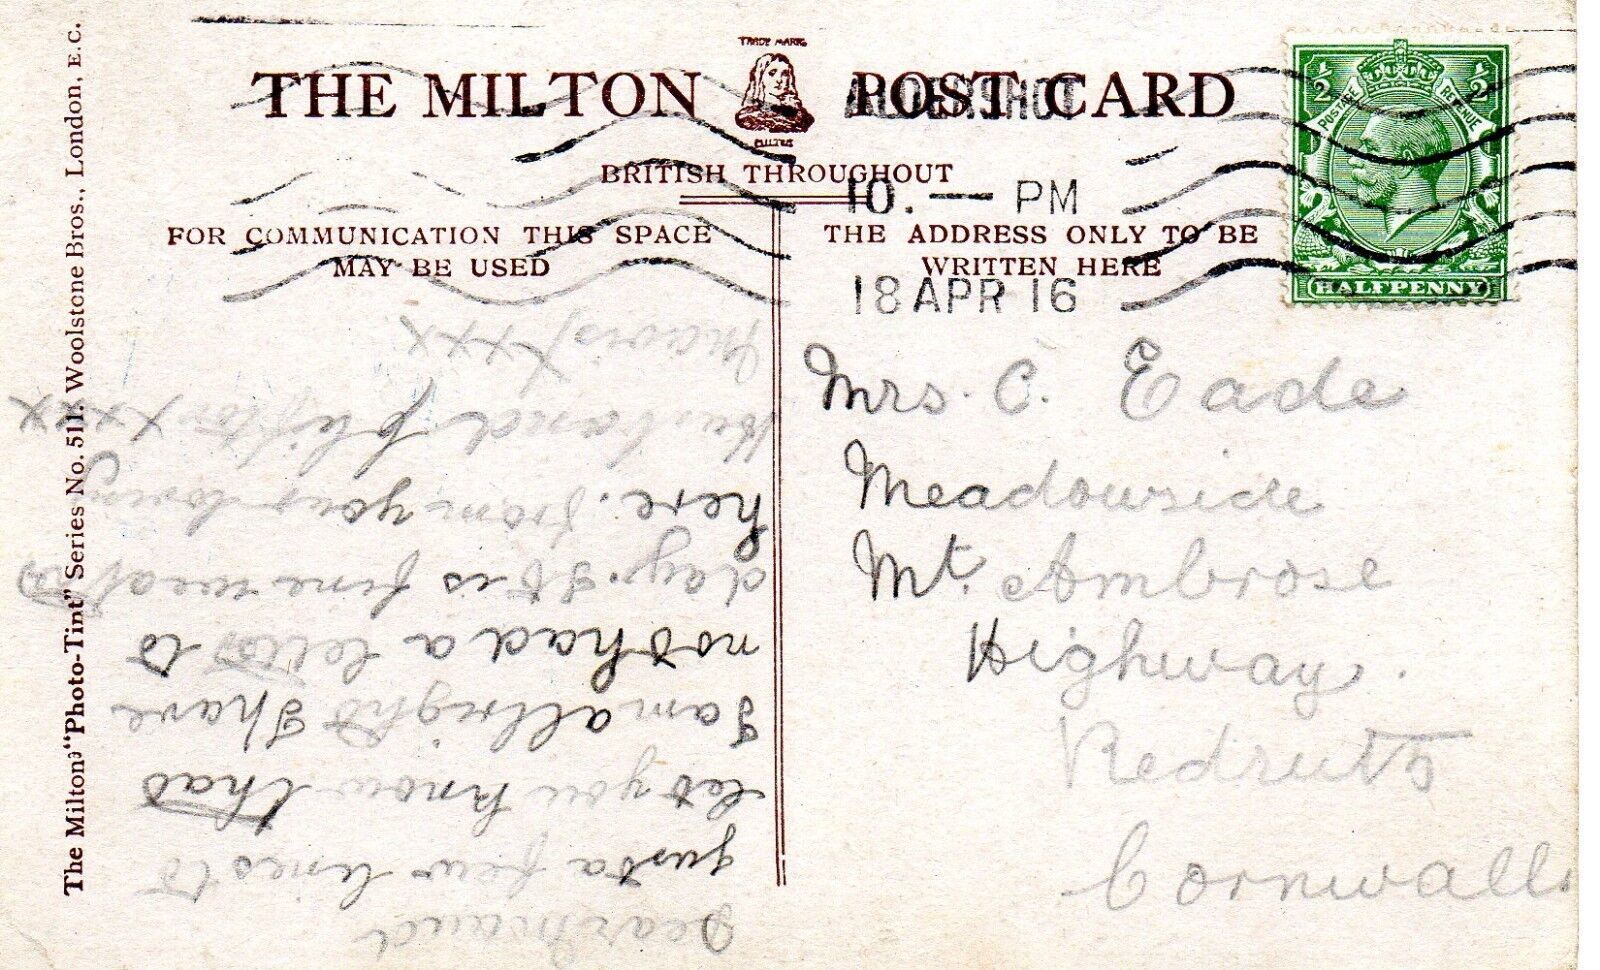 TRADE MARK
THE MILTON POST CARD
MILTON
BRITISH THROUGHOUT
FOR COMMUNICATION THIS SPACE
MAY BE USED
THE ADDRESS ONLY TO BE
WRITTEN HERE
ALDERSHOT
10. — PM
18 APR 16
½ ½
POSTAGE REVENUE
HALFPENNY
The Milton "Photo-Tint" Series No. 511. Woolstone Bros., London, E.C.
Dear Maud
just a few lines to
let you know that
I am allright I have
not had a letter to
day. It is fine weather
here. From your loving
Husband xxxx
Mavis xxxx
Mrs. C. Eade
Meadowside
Mt. Ambrose
Highway.
Redruth
Cornwall